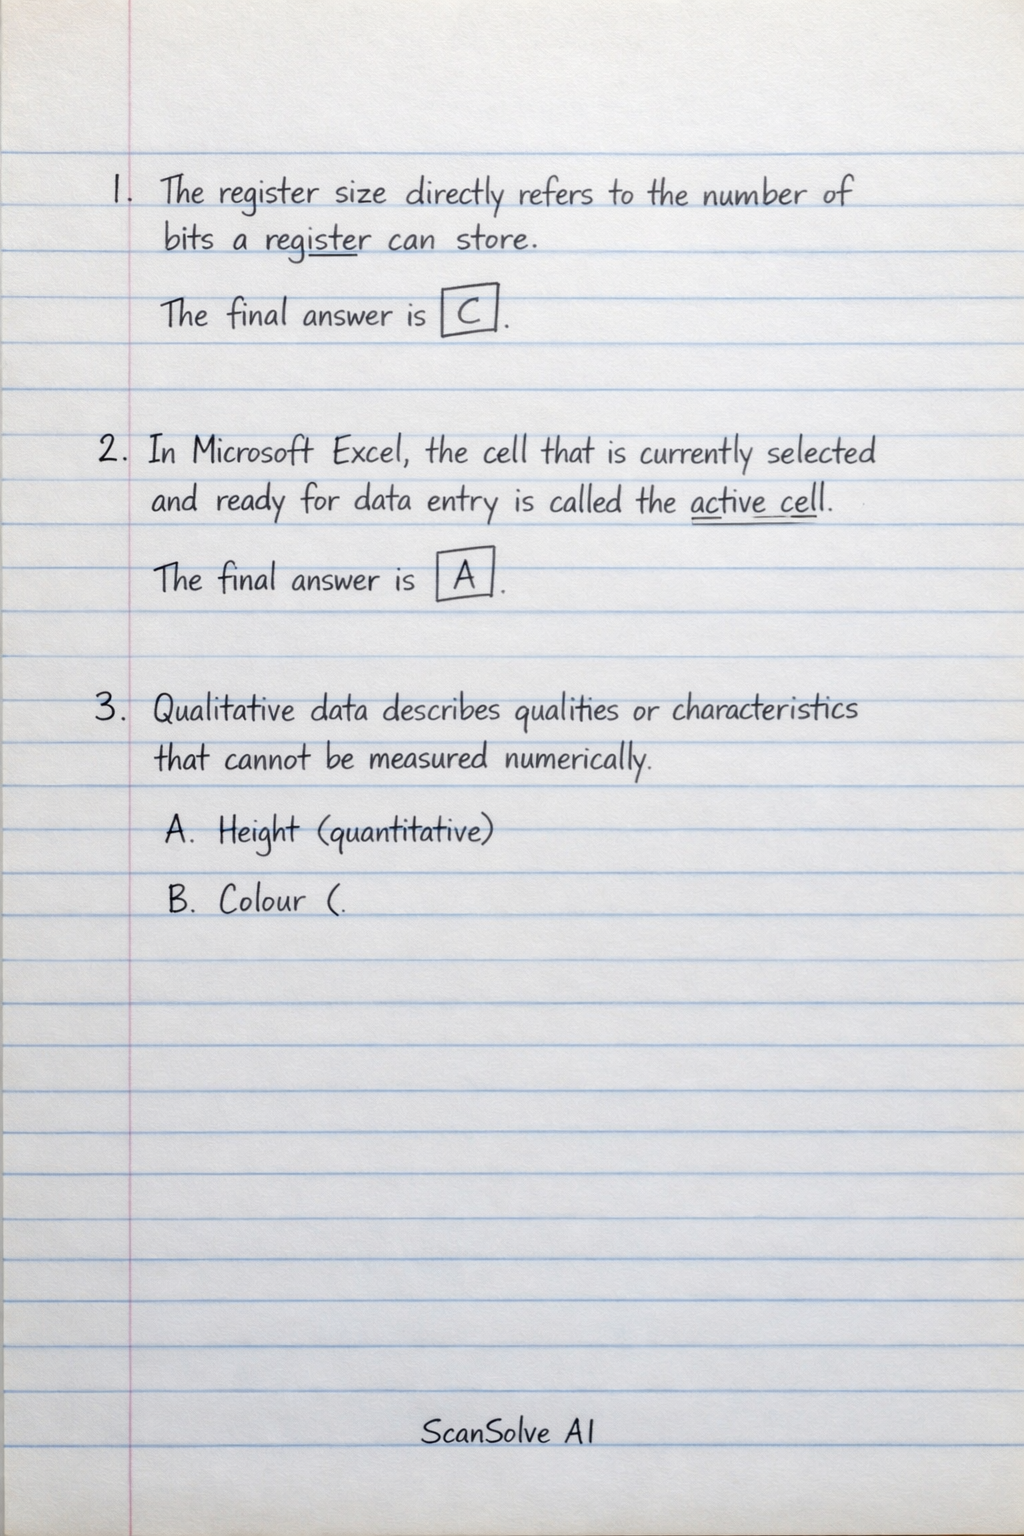 1. The register size directly refers to the number of
bits a register can store.
The final answer is C.
2. In Microsoft Excel, the cell that is currently selected
and ready for data entry is called the active cell.
The final answer is A.
3. Qualitative data describes qualities or characteristics
that cannot be measured numerically.
A. Height (quantitative)
B. Colour (.
ScanSolve AI